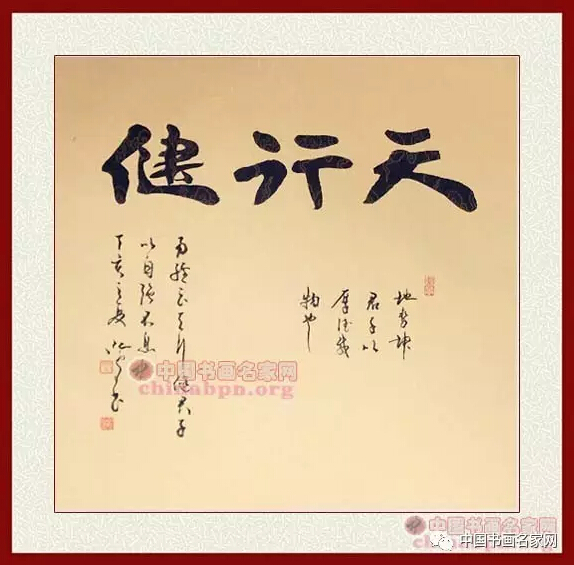 天行健
地势坤
君子以
厚德载
物也
易經云天行健君子
以自强不息
丁亥
中国书画名家网
chinabpn.org
中国书画名家网
中国书画名家网